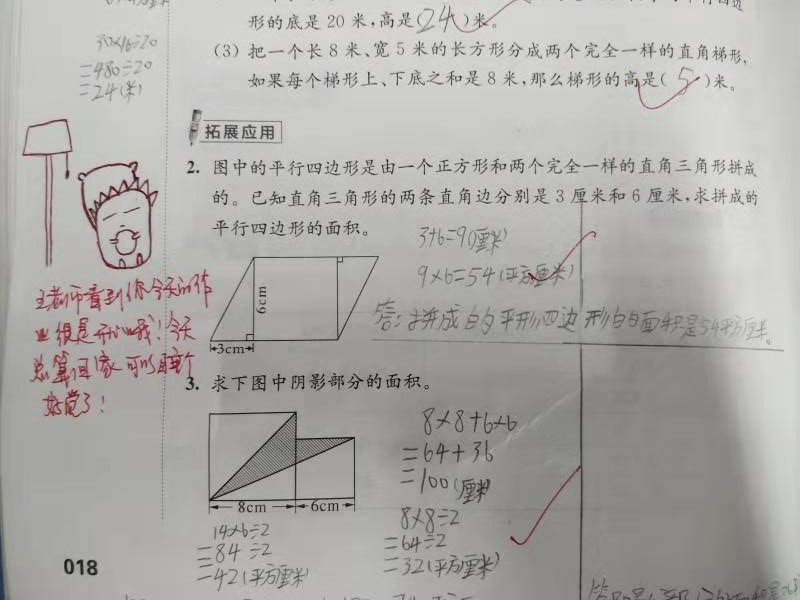 形的底是 20 米,高是(24)米。
30×16÷20
=480÷20
=24(米)
(3) 把一个长 8 米、宽 5 米的长方形分成两个完全一样的直角梯形,
如果每个梯形上、下底之和是 8 米,那么梯形的高是(5)米。
拓展应用
2. 图中的平行四边形是由一个正方形和两个完全一样的直角三角形拼成
的。已知直角三角形的两条直角边分别是 3 厘米和 6 厘米,求拼成的
平行四边形的面积。
3+6=9(厘米)
9×6=54(平方厘米)
答:拼成的平形四边形的面积是54平方厘米。
6cm
3cm
王老师看到你今天的作
业很是开心哦!今天
总算回家可以睡个
好觉了!
3. 求下图中阴影部分的面积。
8cm
6cm
8×8+6×6
=64+36
=100(厘米)
14×6÷2
=84÷2
=42(平方厘米)
8×8÷2
=64÷2
=32(平方厘米)
018